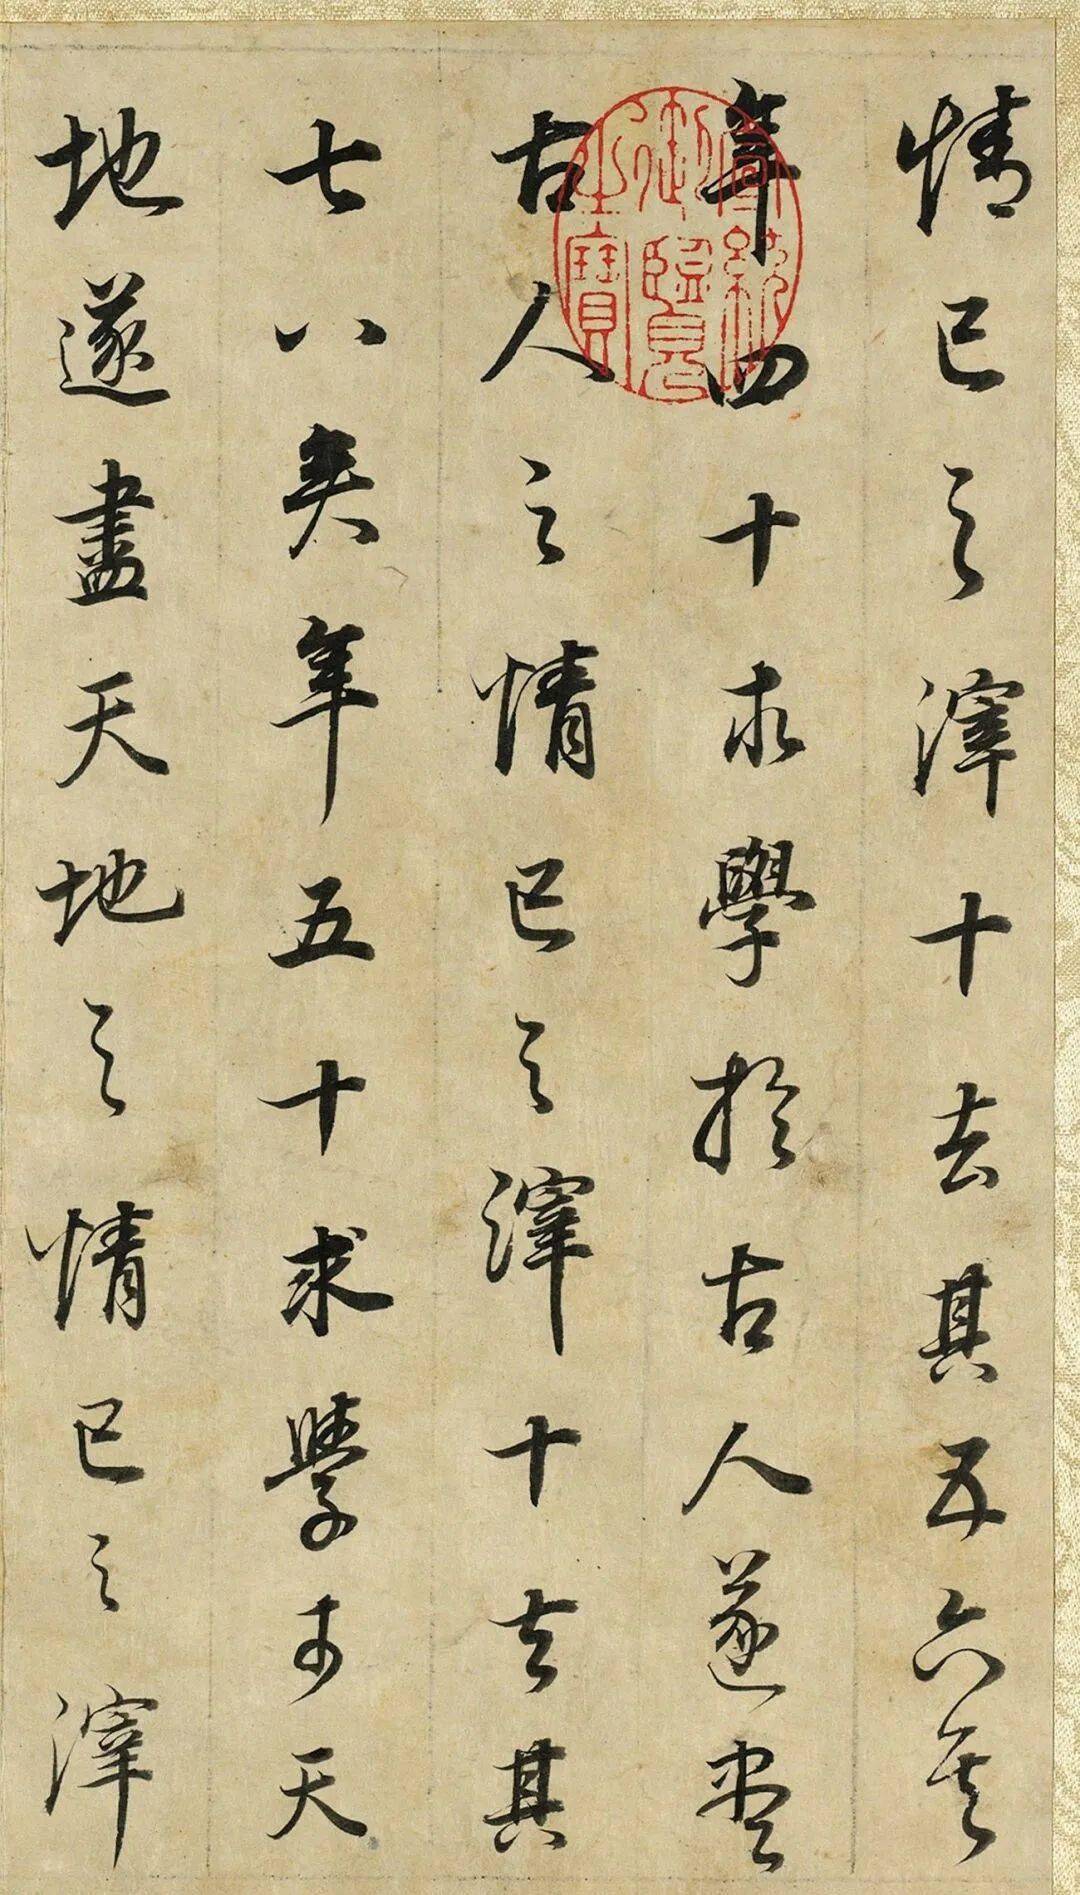 情已之滓十去其五六矣
年四十求學於古人遂盡
古人之情已之滓十去其
七八矣年五十求學於天
地遂盡天地之情已之滓
宣統御覽之寶